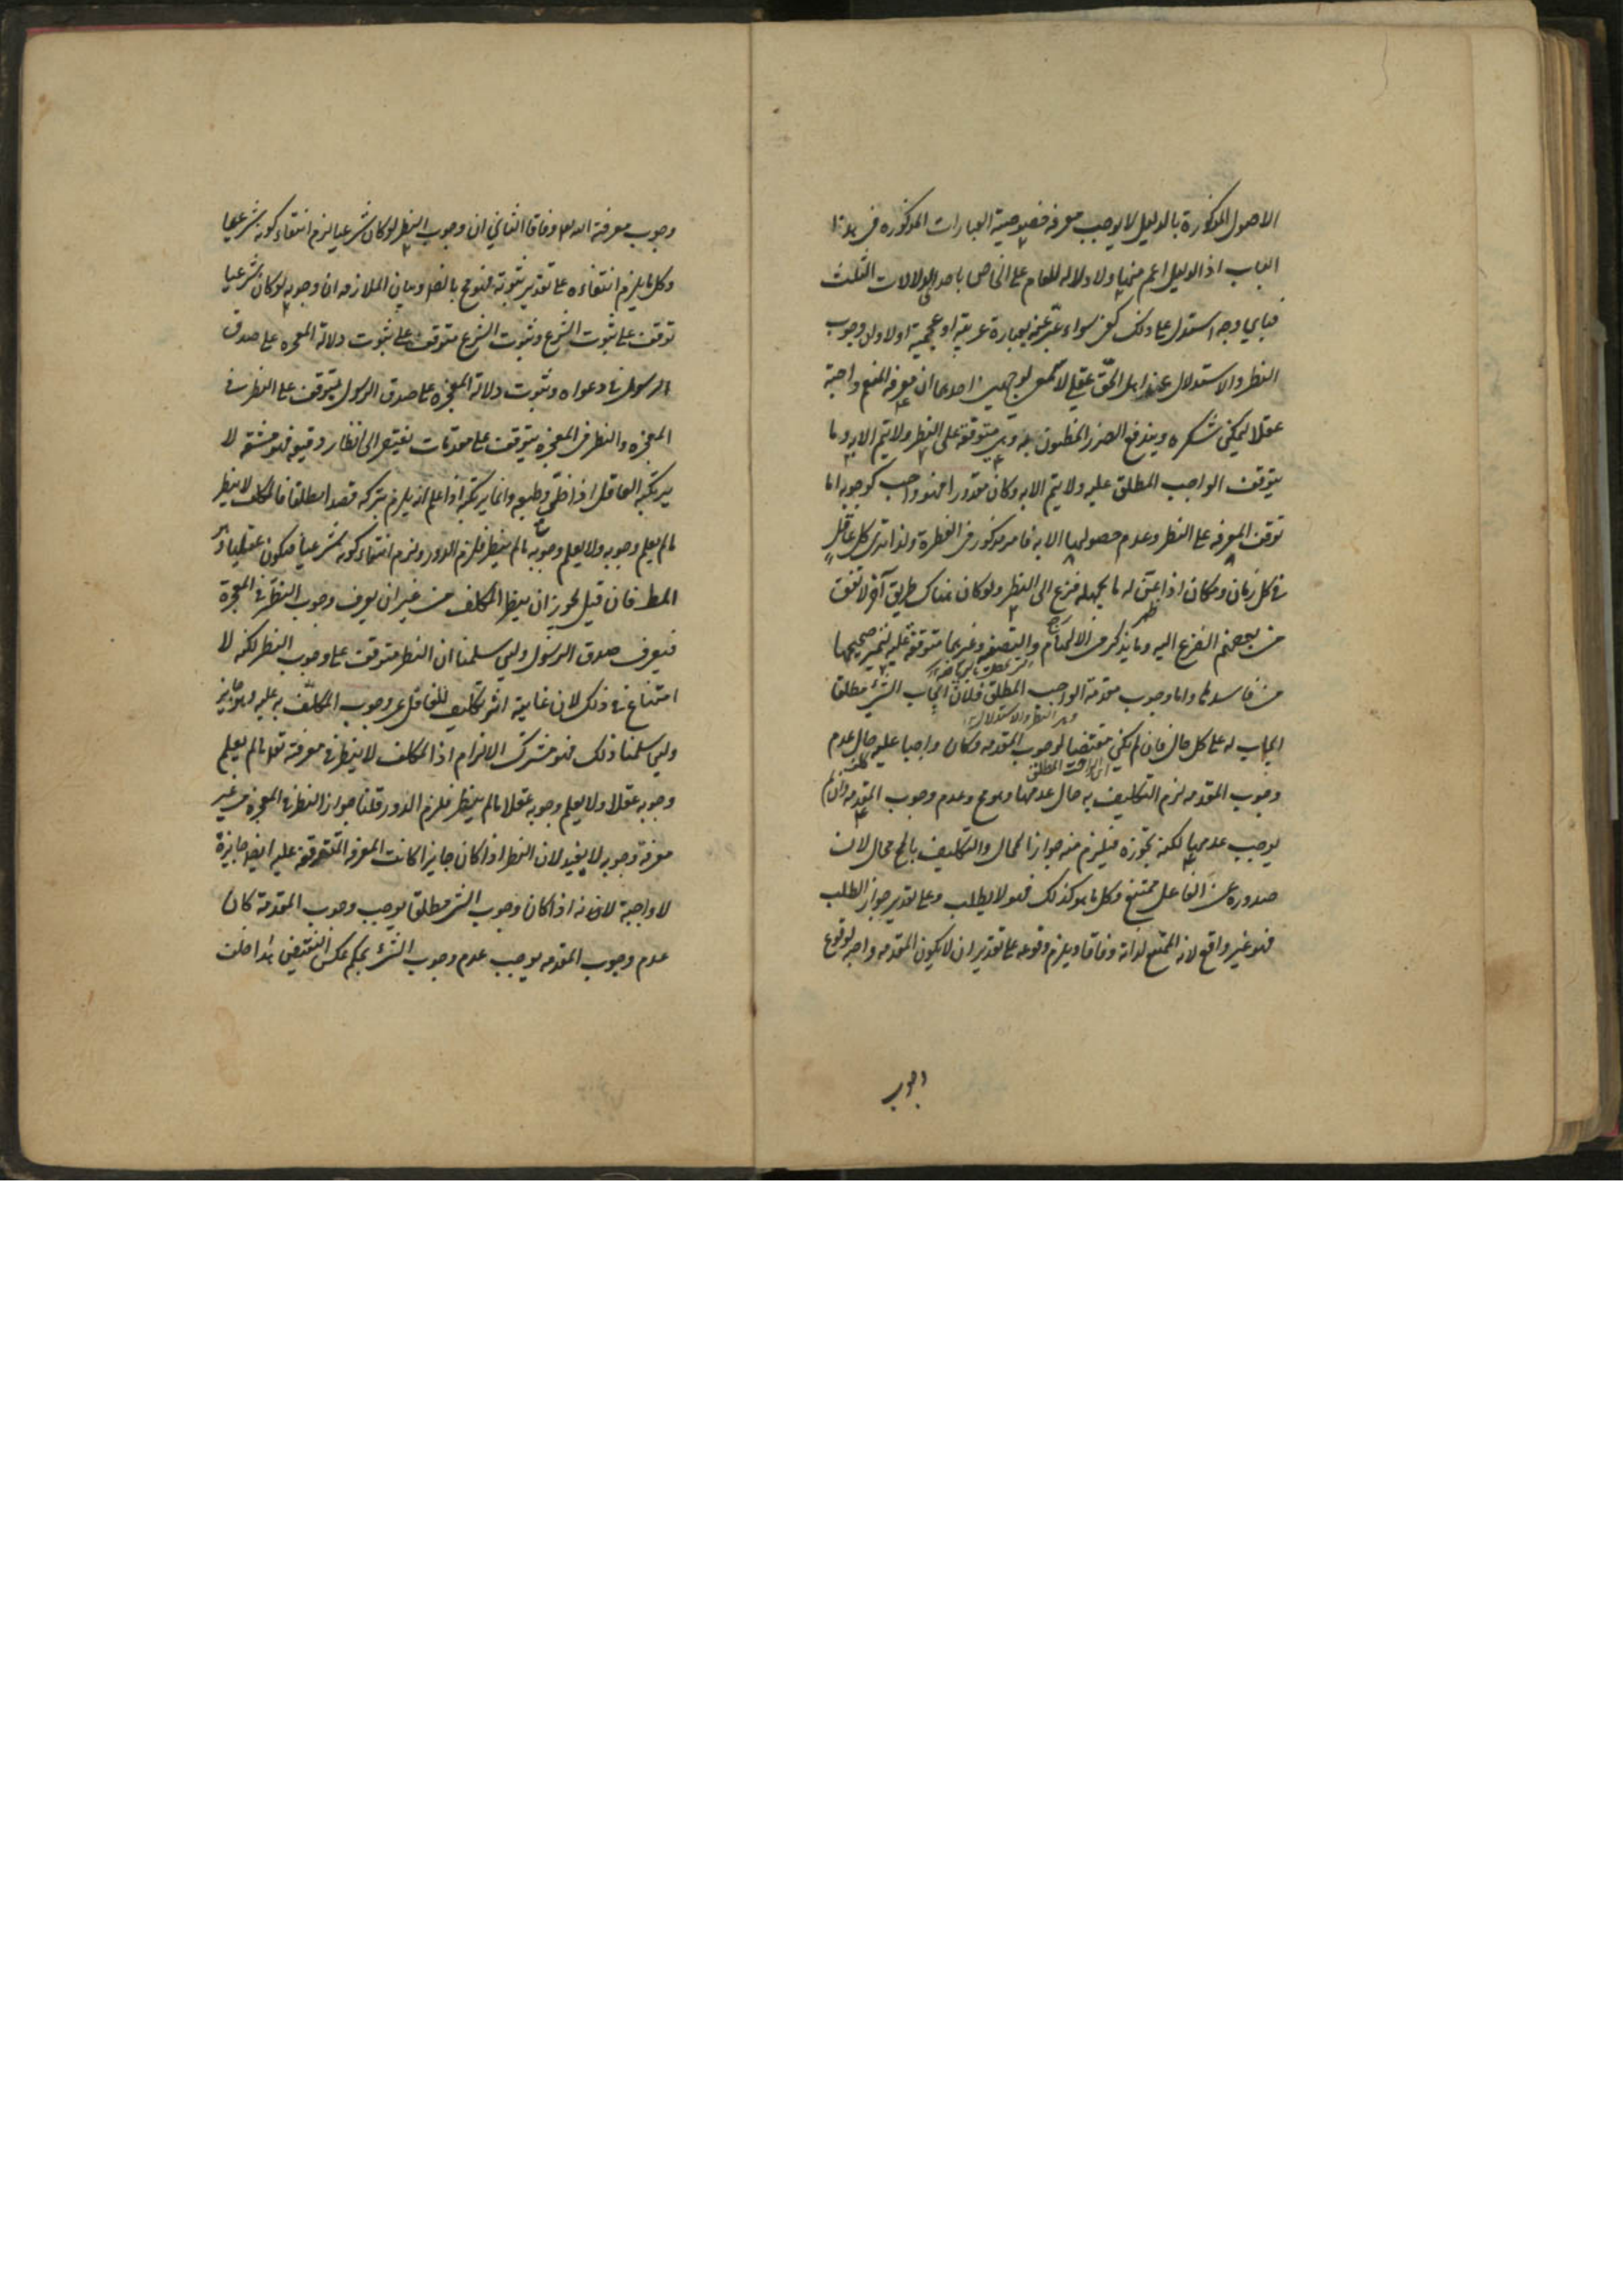 الاصول المذكورة بالدليل لا يوجب معرفة خصوصية العبارات المذكوره فى هذا
الباب اذ الدليل اعم منها ولا دلاله للعام على الخاص باحدى الدلالات الثلث
فباي وجه استدل على ذلك كفى سواء عبّر عنه بعبارة عربية او عجمية اولا ولان وجوب
النظر والاستدلال عند اهل الحق عقلي لا سمعي لوجهين احدهما ان معرفة المنعم واجبة
عقلا ليمكن شكره ويندفع الضرر المظنون به وهي متوقفة على النظر ولا يتم الا به وما
يتوقف الواجب المطلق عليه ولا يتم الا به وكان مقدورا فهو واجب كوجوبه اما
توقف المعرفه على النظر وعدم حصولها الا به فامر مذكور فى الفطرة ولذا ترى كل عاقل
في كل زمان ومكان اذا عنّ له ما يجهله فزع الى النظر ولو كان هناك طريق آخر لاتفق
من بعضهم الفزع اليه وما يذكر من الالهام والتصفيه وغيرهما متوقفة عليه لتميز صحيحها
من فاسدها واما وجوب مقدمة الواجب المطلق فلان ايجاب الشئ مطلقا
وهى النظر والاستدلال
ايجاب له على كل حال فان لم يكن مقتضيا لوجوب المقدمه فكان واجبا عليه حال عدم
اى الواجب المطلق
وجوب المقدمه لزم التكليف به حال عدمها وهو مح وعدم وجوب المقدمه وان لم
يوجب عدمها لكنه يجوزه فيلزم منه جواز المحال والتكليف بالمح محال لان
صدوره عن الفاعل ممتنع وكل ما هو كذلك فهو لا يطلب وعلى تقدير جواز الطلب
فهو غير واقع لانه الممتنع لذاته وفاقا ويلزم وقوعه على تقدير ان لا يكون المقدمه واجبه لوقوع
وجوب
وجوب معرفة الله وفاقا الثاني ان وجوب النظر لو كان شرعيا لزم انتفاء كونه شرعيا
وكل ما يلزم انتفاءه على تقدير ثبوته فهو مح بالضر وبيان الملازمه ان وجوبه لو كان شرعيا
توقف على ثبوت الشرع وثبوت الشرع متوقف على ثبوت دلالة المعجزه على صدق
الرسول في دعواه وثبوت دلالة المعجزه على صدق الرسول يتوقف على النظر في
المعجزه والنظر فى المعجزه يتوقف على مقدمات يفتقر الى انظار دقيقه فهو مشقه لا
يرتكبه العاقل اذا خلّي وطبعه وانما يرتكبه اذا علم انه يلزم بتركه قصد مطلقا فالمكلف لا ينظر
ما لم يعلم وجوبه ولا يعلم وجوبه ما لم ينظر فلزم الدور ولزم انتفاء كونه شرعيا فيكون عقليا وهو
المط فان قيل يجوز ان ينظر المكلف من غير ان يعرف وجوب النظر في المعجزة
فيعرف صدق الرسول ولئن سلمنا ان النظر متوقف على وجوب النظر لكنه لا
امتناع في ذلك لان غايته انه تكليف للغافل عن وجوب المكلف به عليه وهو جايز
ولئن سلمنا ذلك فهو مشترك الالزام اذ المكلف لا ينظر في معرفة تعالى ما لم يعلم
وجوبه عقلا ولا يعلم وجوبه عقلا ما لم ينظر فلزم الدور قلنا جواز النظر في المعجزه من غير
معرفة وجوبه لا يفيد لان النظر اذا كان جايزا كانت المعرفه المتوقفة عليه ايضا جايزة
لا واجبة لانه اذا كان وجوب الشئ مطلقا يوجب وجوب المقدمة كان
عدم وجوب المقدمه يوجب عدم وجوب الشئ بحكم عكس النقيض هذا خلف